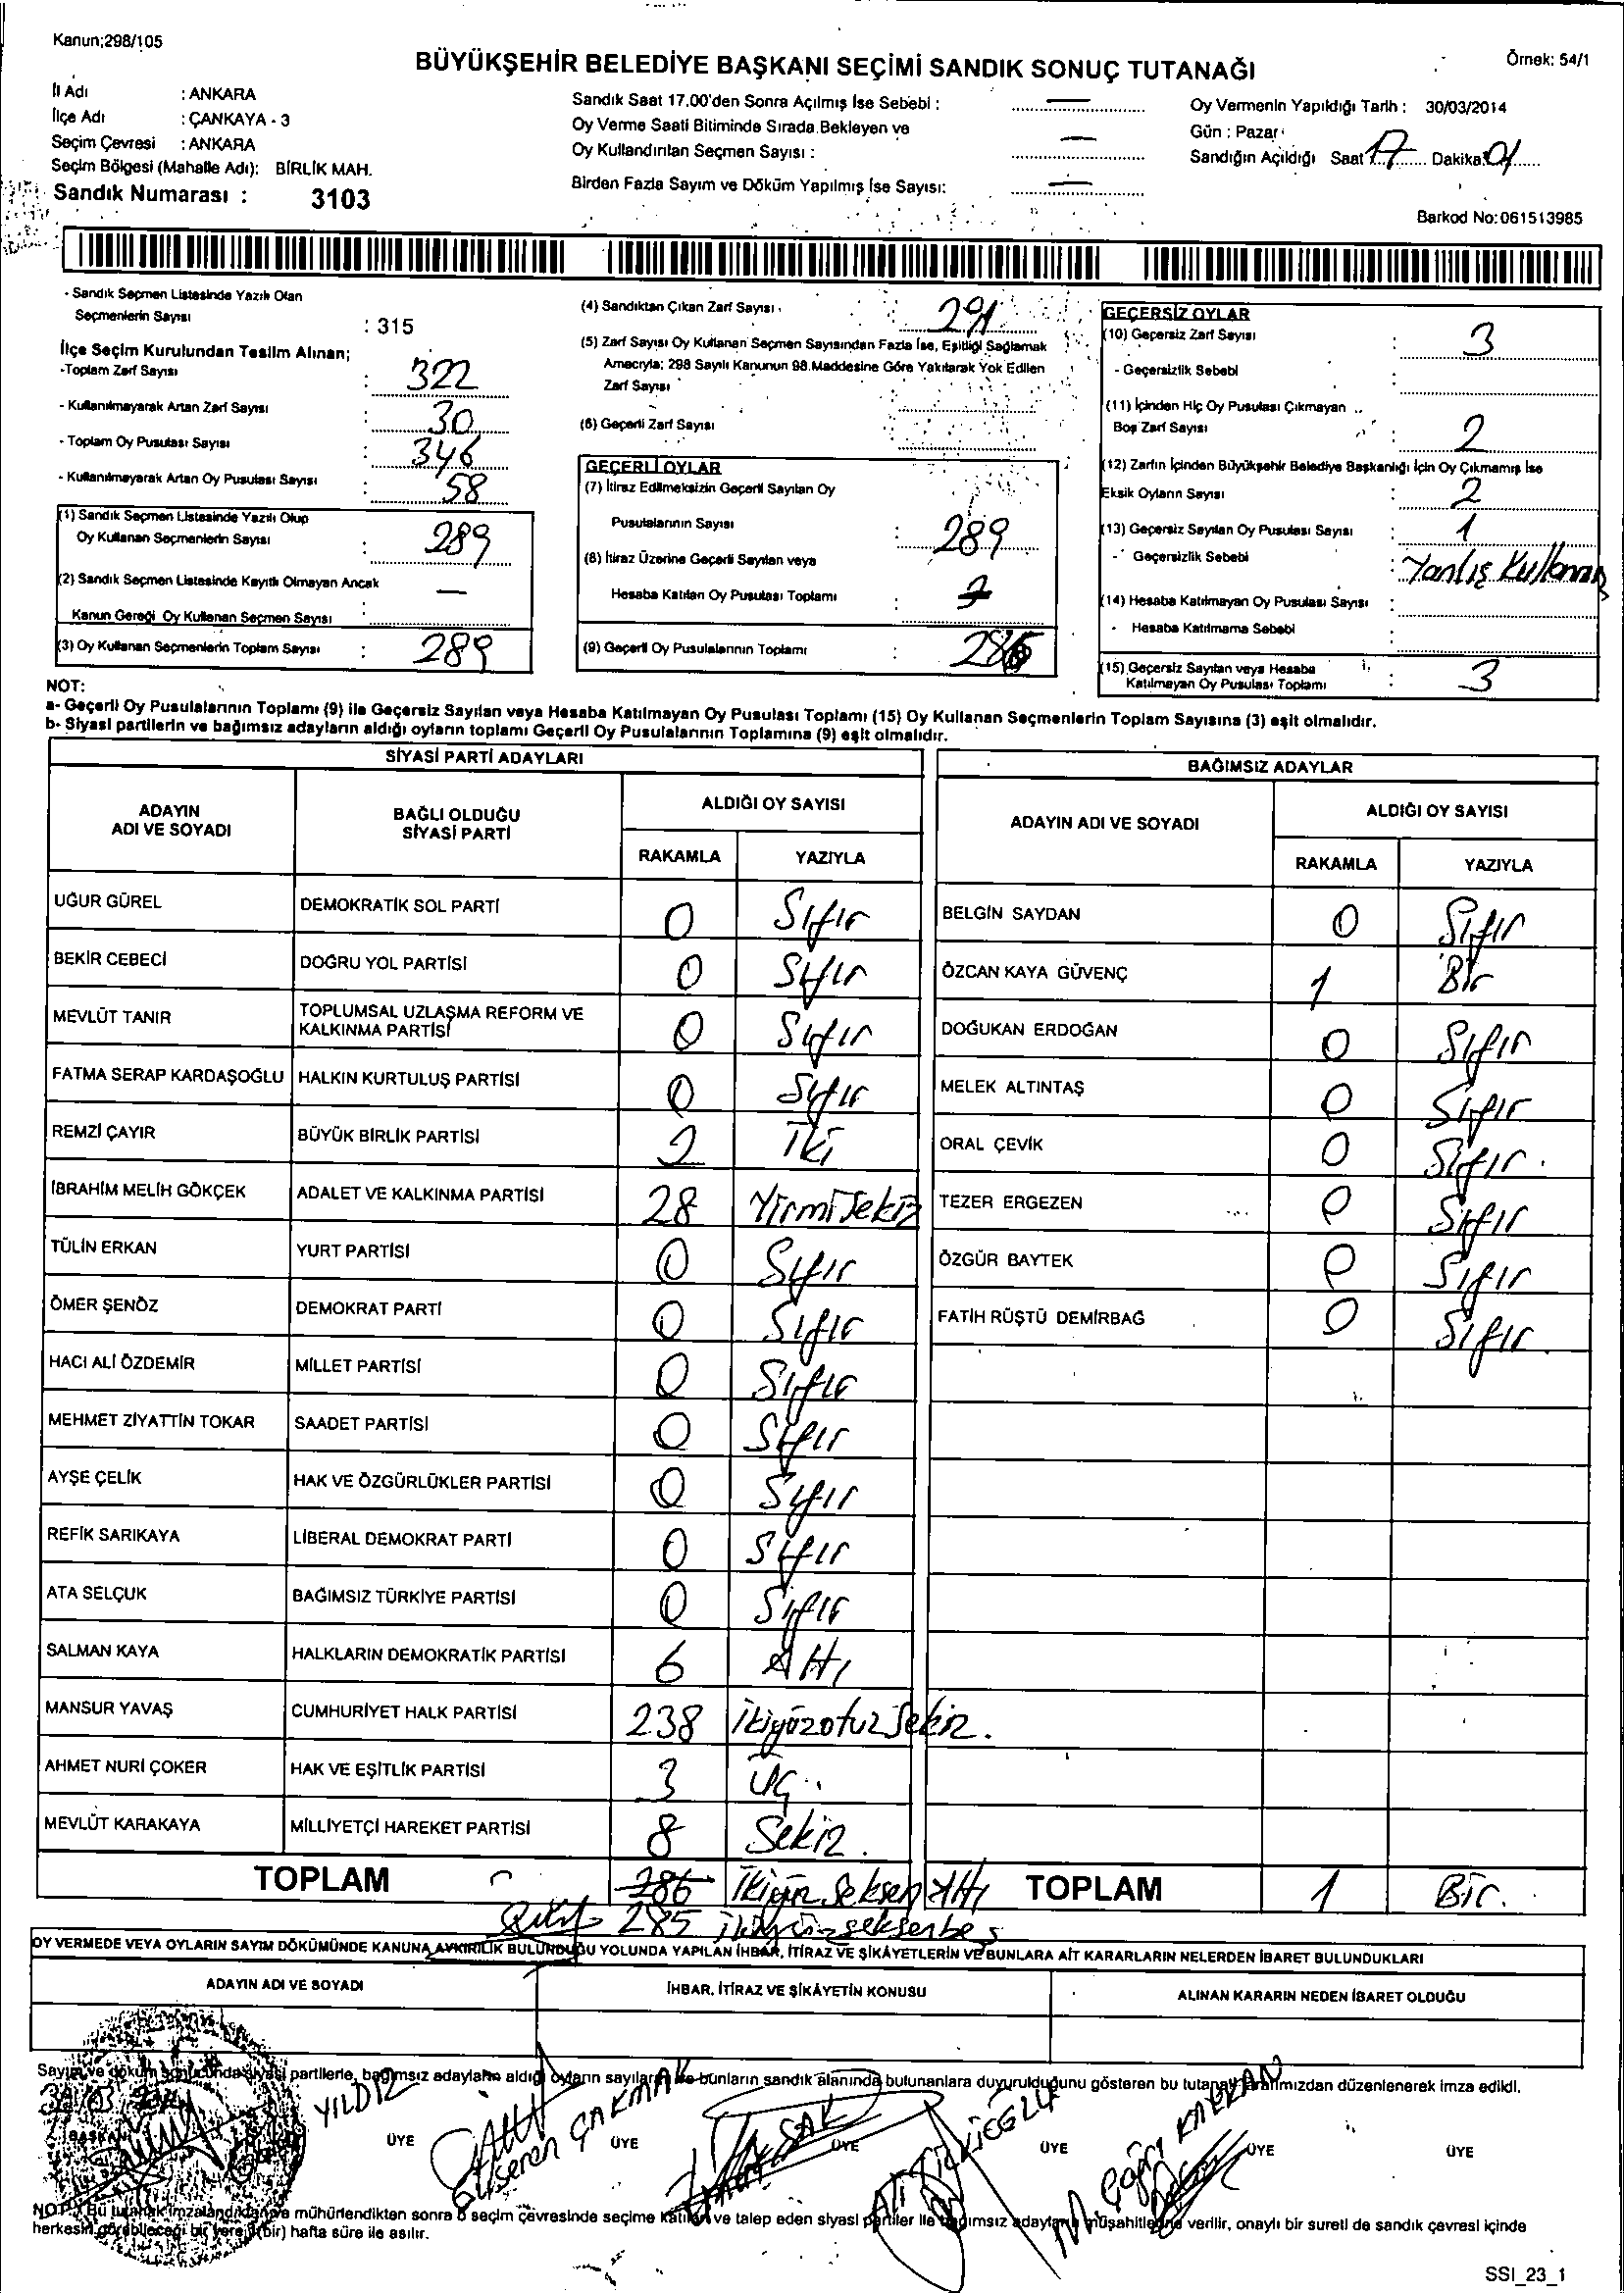 Kanun;298/105
BÜYÜKŞEHİR BELEDİYE BAŞKANI SEÇİMİ SANDIK SONUÇ TUTANAĞI
Örnek: 54/1
İl Adı : ANKARA
İlçe Adı : ÇANKAYA - 3
Seçim Çevresi : ANKARA
Seçim Bölgesi (Mahalle Adı): BİRLİK MAH.
Sandık Numarası : 3103
Sandık Saat 17.00'den Sonra Açılmış İse Sebebi : —
Oy Verme Saati Bitiminde Sırada Bekleyen ve
Oy Kullandırılan Seçmen Sayısı : —
Birden Fazla Sayım ve Döküm Yapılmış İse Sayısı: —
Oy Vermenin Yapıldığı Tarih : 30/03/2014
Gün : Pazar
Sandığın Açıldığı Saat 17 Dakika 01
Barkod No:061513985
- Sandık Seçmen Listesinde Yazılı Olan
Seçmenlerin Sayısı : 315
İlçe Seçim Kurulundan Teslim Alınan;
-Toplam Zarf Sayısı : 322
- Kullanılmayarak Artan Zarf Sayısı : 30
- Toplam Oy Pusulası Sayısı : 346
- Kullanılmayarak Artan Oy Pusulası Sayısı : 58
(1) Sandık Seçmen Listesinde Yazılı Olup
Oy Kullanan Seçmenlerin Sayısı : 289
(2) Sandık Seçmen Listesinde Kayıtlı Olmayan Ancak
Kanun Gereği Oy Kullanan Seçmen Sayısı : —
(3) Oy Kullanan Seçmenlerin Toplam Sayısı : 289
(4) Sandıktan Çıkan Zarf Sayısı : 291
(5) Zarf Sayısı Oy Kullanan Seçmen Sayısından Fazla İse, Eşitliği Sağlamak
Amacıyla; 298 Sayılı Kanunun 98.Maddesine Göre Yakılarak Yok Edilen
Zarf Sayısı
(6) Geçerli Zarf Sayısı
GEÇERLİ OYLAR
(7) İtiraz Edilmeksizin Geçerli Sayılan Oy
Pusulalarının Sayısı : 289
(8) İtiraz Üzerine Geçerli Sayılan veya
Hesaba Katılan Oy Pusulası Toplamı :
(9) Geçerli Oy Pusulalarının Toplamı :
GEÇERSİZ OYLAR
(10) Geçersiz Zarf Sayısı : 3
- Geçersizlik Sebebi :
(11) İçinden Hiç Oy Pusulası Çıkmayan
Boş Zarf Sayısı : 2
(12) Zarfın İçinden Büyükşehir Belediye Başkanlığı İçin Oy Çıkmamış İse
Eksik Oyların Sayısı : 2
(13) Geçersiz Sayılan Oy Pusulası Sayısı : 1
- Geçersizlik Sebebi : Yanlış Kullanım
(14) Hesaba Katılmayan Oy Pusulası Sayısı :
- Hesaba Katılmama Sebebi :
(15) Geçersiz Sayılan veya Hesaba
Katılmayan Oy Pusulası Toplamı : 3
NOT:
a- Geçerli Oy Pusulalarının Toplamı (9) ile Geçersiz Sayılan veya Hesaba Katılmayan Oy Pusulası Toplamı (15) Oy Kullanan Seçmenlerin Toplam Sayısına (3) eşit olmalıdır.
b- Siyasi partilerin ve bağımsız adayların aldığı oyların toplamı Geçerli Oy Pusulalarının Toplamına (9) eşit olmalıdır.
SİYASİ PARTİ ADAYLARI
ADAYIN ADI VE SOYADI
BAĞLI OLDUĞU SİYASİ PARTİ
ALDIĞI OY SAYISI
RAKAMLA YAZIYLA
UĞUR GÜREL DEMOKRATİK SOL PARTİ 0 Sıfır
BEKİR CEBECİ DOĞRU YOL PARTİSİ 0 Sıfır
MEVLÜT TANIR TOPLUMSAL UZLAŞMA REFORM VE KALKINMA PARTİSİ 0 Sıfır
FATMA SERAP KARDAŞOĞLU HALKIN KURTULUŞ PARTİSİ 0 Sıfır
REMZİ ÇAYIR BÜYÜK BİRLİK PARTİSİ 2 İki
İBRAHİM MELİH GÖKÇEK ADALET VE KALKINMA PARTİSİ 28 Yirmi Sekiz
TÜLİN ERKAN YURT PARTİSİ 0 Sıfır
ÖMER ŞENÖZ DEMOKRAT PARTİ 0 Sıfır
HACI ALİ ÖZDEMİR MİLLET PARTİSİ 0 Sıfır
MEHMET ZİYATTİN TOKAR SAADET PARTİSİ 0 Sıfır
AYŞE ÇELİK HAK VE ÖZGÜRLÜKLER PARTİSİ 0 Sıfır
REFİK SARIKAYA LİBERAL DEMOKRAT PARTİ 0 Sıfır
ATA SELÇUK BAĞIMSIZ TÜRKİYE PARTİSİ 0 Sıfır
SALMAN KAYA HALKLARIN DEMOKRATİK PARTİSİ 6 Altı
MANSUR YAVAŞ CUMHURİYET HALK PARTİSİ 238 İkiyüzotuz Sekiz.
AHMET NURİ ÇOKER HAK VE EŞİTLİK PARTİSİ 3 Üç
MEVLÜT KARAKAYA MİLLİYETÇİ HAREKET PARTİSİ 8 Sekiz.
TOPLAM 286 İkiyüz Seksen Altı
285 ikiyüzseksenbeş
BAĞIMSIZ ADAYLAR
ADAYIN ADI VE SOYADI
ALDIĞI OY SAYISI
RAKAMLA YAZIYLA
BELGİN SAYDAN 0 Sıfır
ÖZCAN KAYA GÜVENÇ 1 Bir
DOĞUKAN ERDOĞAN 0 Sıfır
MELEK ALTINTAŞ 0 Sıfır
ORAL ÇEVİK 0 Sıfır.
TEZER ERGEZEN 0 Sıfır
ÖZGÜR BAYTEK 0 Sıfır
FATİH RÜŞTÜ DEMİRBAĞ 0 Sıfır.
TOPLAM 1 Bir.
OY VERMEDE VEYA OYLARIN SAYIM DÖKÜMÜNDE KANUNA AYKIRILIK BULUNDUĞU YOLUNDA YAPILAN İHBAR, İTİRAZ VE ŞİKÂYETLERİN VE BUNLARA AİT KARARLARIN NELERDEN İBARET BULUNDUKLARI
ADAYIN ADI VE SOYADI
İHBAR, İTİRAZ VE ŞİKÂYETİN KONUSU
ALINAN KARARIN NEDEN İBARET OLDUĞU
Sayım ve döküm sonucunda siyasi partilerle, bağımsız adayların aldığı oyların sayıları ile bunların sandık alanında bulunanlara duyurulduğunu gösteren bu tutanak tarafımızdan düzenlenerek imza edildi.
YILDIZ
ÇAKMAK
BAŞKAN ÜYE ÜYE ÜYE ÜYE ÜYE ÜYE
NOT: Bu tutanak imzalandıktan ve mühürlendikten sonra o seçim çevresinde seçime katılan ve talep eden siyasi partiler ile bağımsız adayların müşahitlerine verilir, onaylı bir sureti de sandık çevresi içinde
herkesin görebileceği bir yere (bir) hafta süre ile asılır.
SSI_23_1